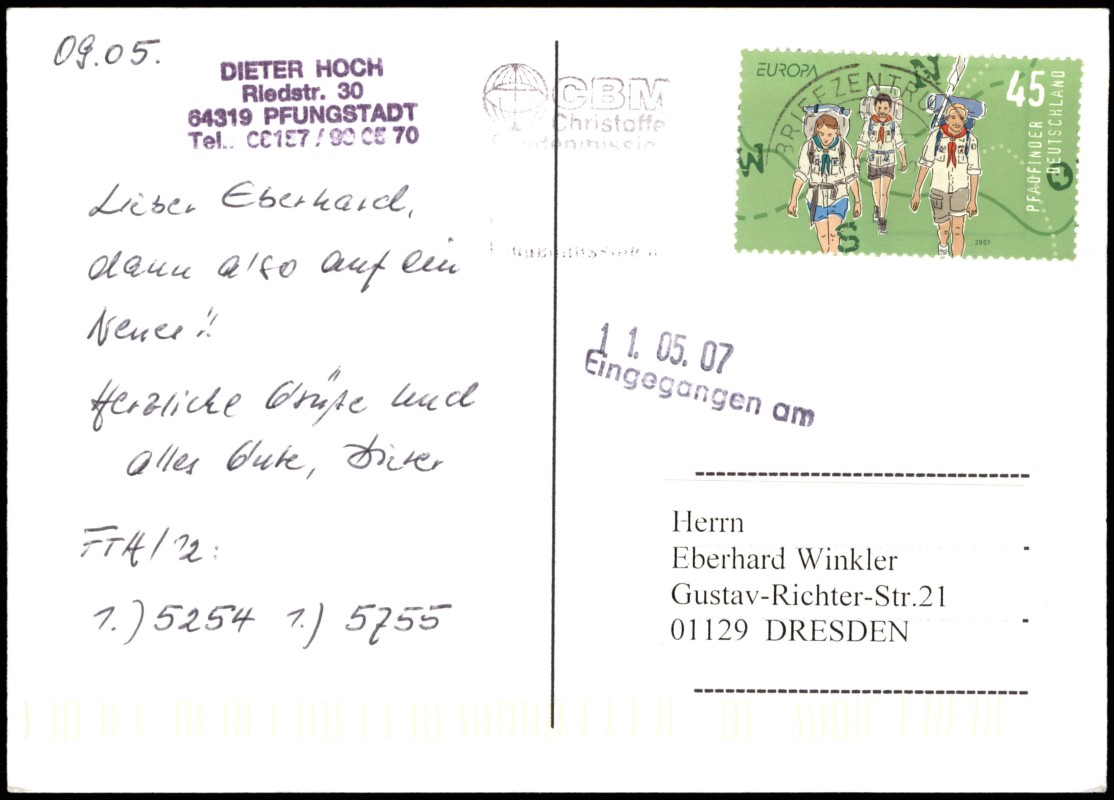 09.05.
DIETER HOCH
Riedstr. 30
64319 PFUNGSTADT
Tel.:
Lieber Eberhard,
dann also auf ein
Neues!!
Herzliche Grüße und
alles Gute, Dieter
FTH/12:
1.) 5254 1.) 5755
CBM
Christoffe
ndenmission
BRIEFZENTR
EUROPA
45
PFADFINDER
DEUTSCHLAND
W
N
O
S
2007
11.05.07
Eingegangen am
Herrn
Eberhard Winkler
Gustav-Richter-Str.21
01129 DRESDEN